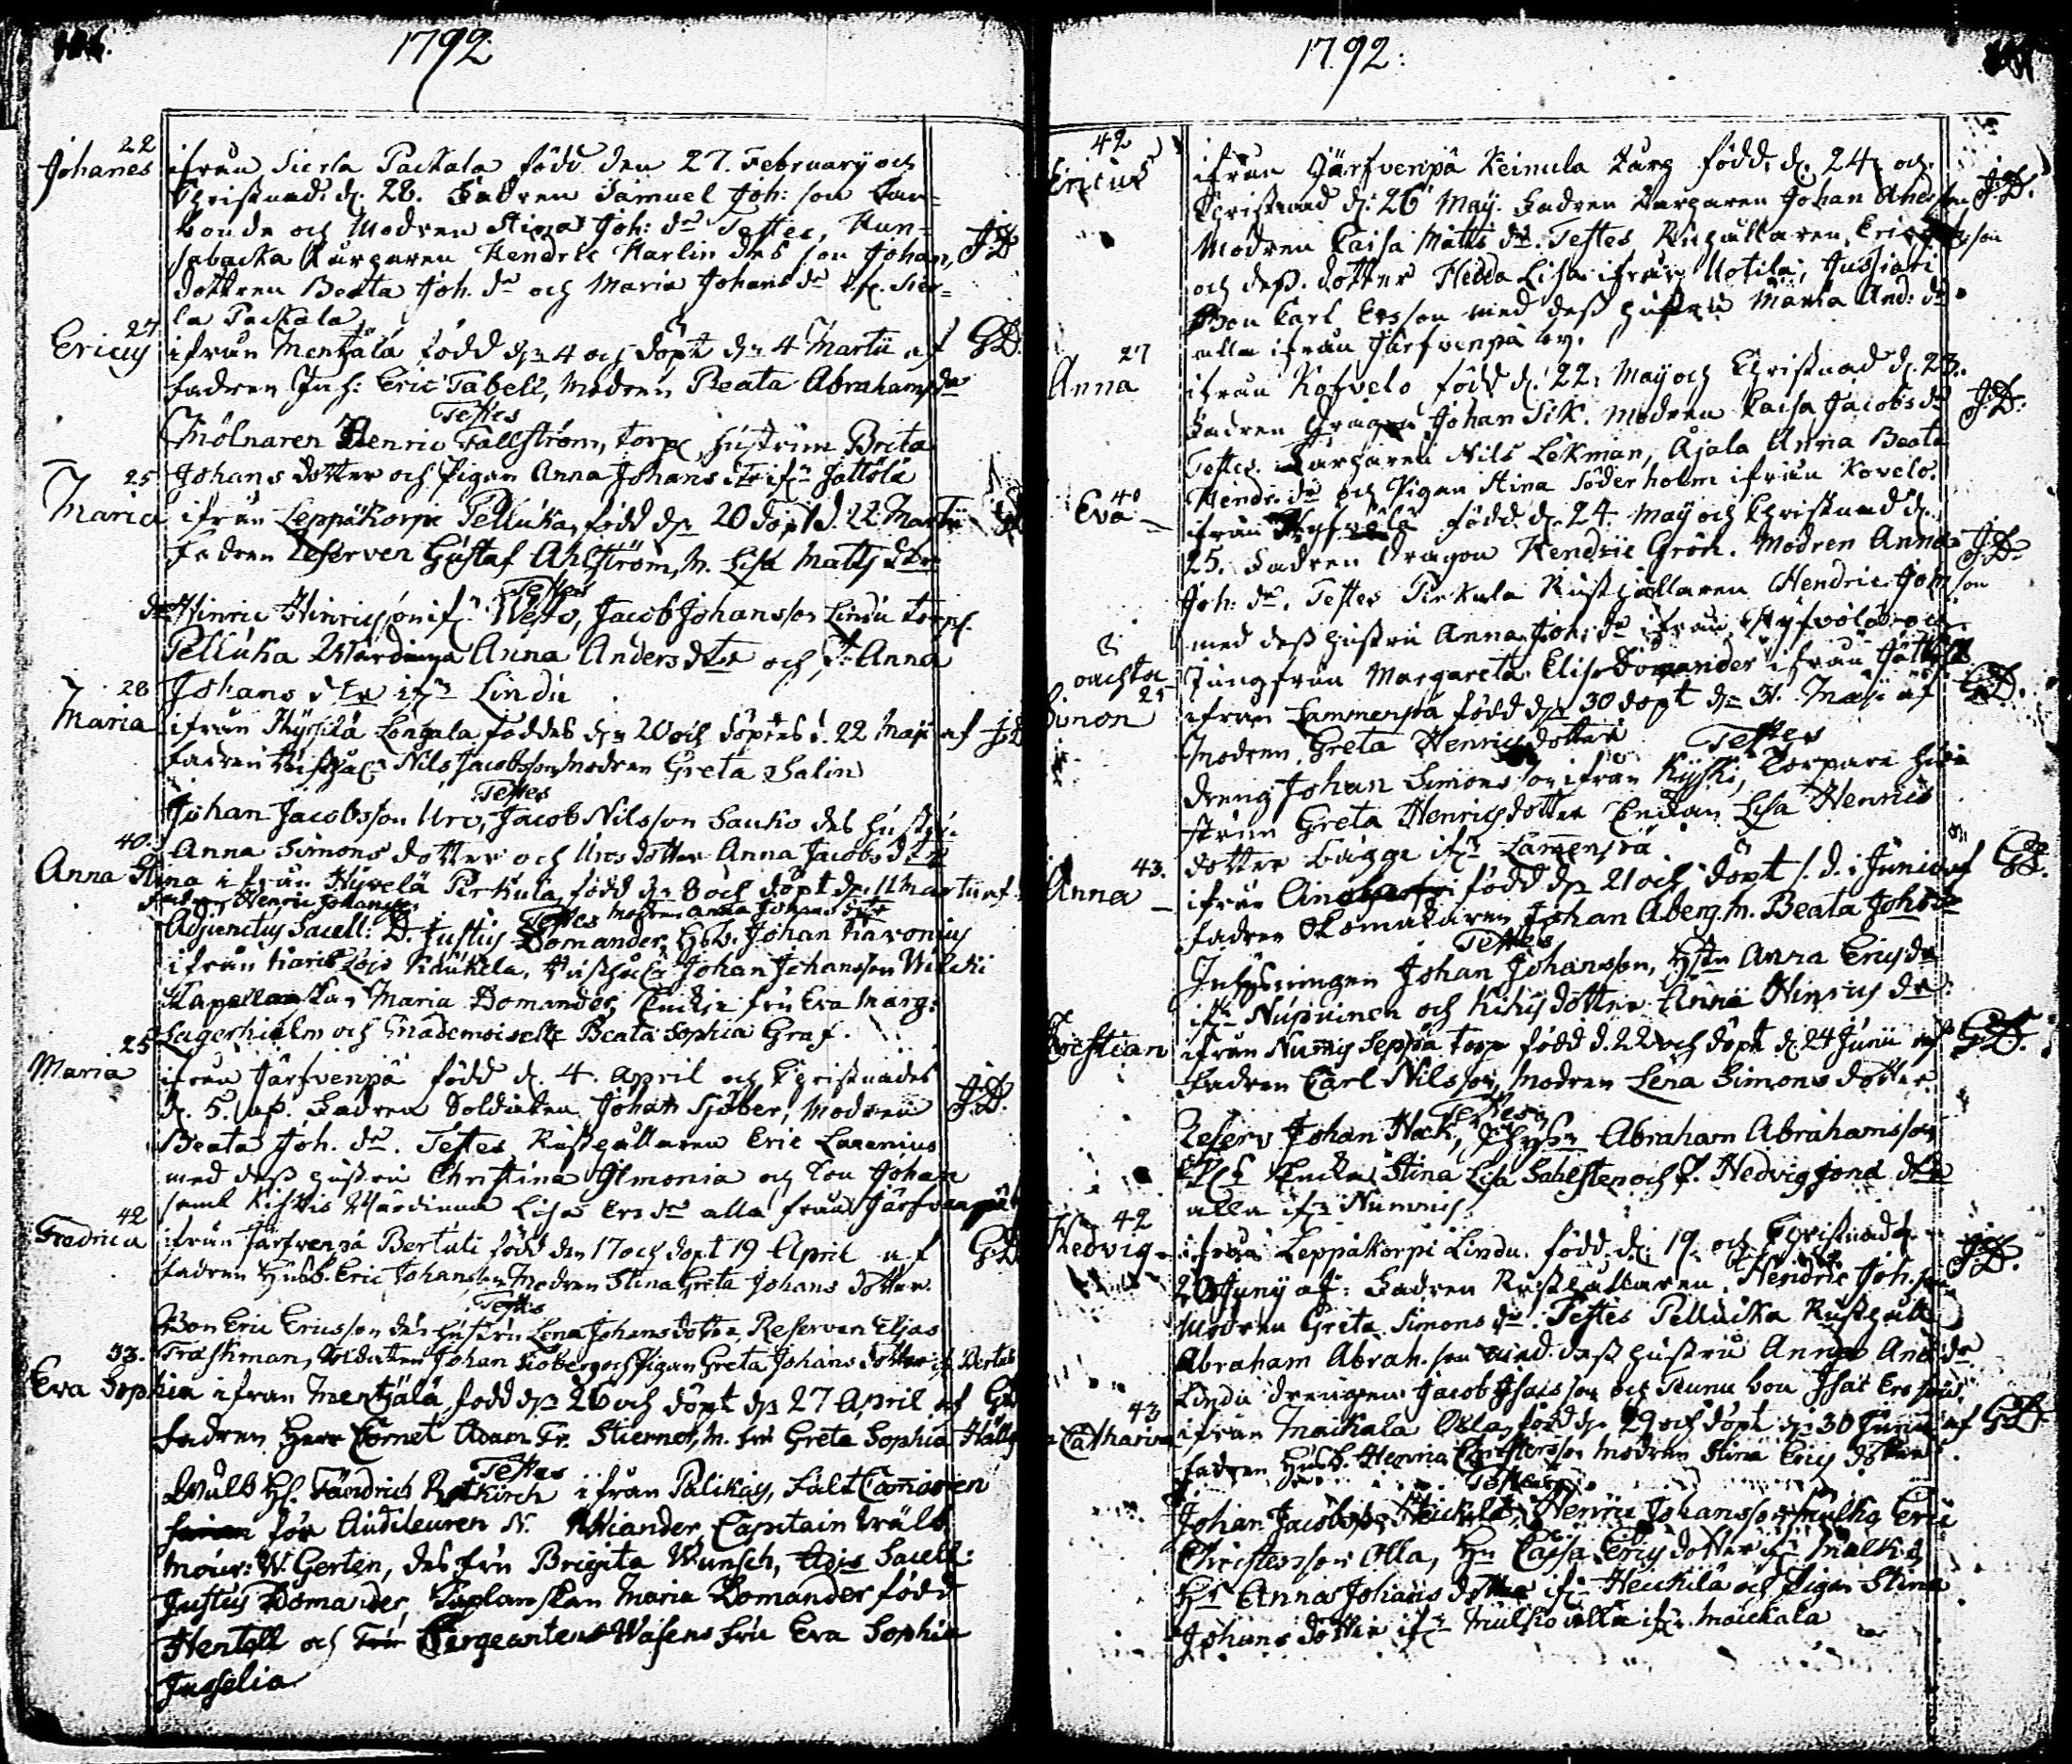 1792
22
Johanes ifrån Sierla Packala född den 27. February och
Christnad d. 28. Fadren Samuel Joh: son Lan-
bonde och Modren Stina Joh: dr Testes, Kun-
sabacka Torparen Hendric Karlin des son Johan, J:D
dottren Beata Joh. dr och Maria Johans dr if. Sier-
la Packala
27
Ericus ifrån Mentzälä född dn 4 och döpt dn 4 Martii af GD.
fadren Inh: Eric Tabell, Modren Beata Abrahams dr
Testes
Mölnaren Henric Fallström, torp. hustrun Brita
25 Johans dotter och Pigan Anna Johans dtr ifn Jottola
Maria ifrån Leppäkorpi Pelluka, född dn 20 döpt d. 22 Martii
Fadren Reserven Gustaf Ahlström, M. Lisa Matts dtr
Testes
Hinric Hinricson if. Jacob Johansson Lindu torp.
Pelluka Wärdinna Anna Anders dtr och P. Anna
28 Johans dtr ifn Lindu
Maria ifrån Longala föddes dn 20 och döptes d. 22 Maji af
fadren Nils Jacobsson Modren Greta Salin
Testes
Johan Jacobsson Uro, Jacob Nilsson Sauko des hustru
40. Anna Simons dotter och Uros dotter Anna Jacobs dtr
Anna Stina ifrån Hyvelä Pirkula född dn 8 och döpt dn 11 Martii af
Fadren Henric Johansson Modren Anna Johans dtr
Testes
Adjunctus Sacell: D. Justus Domander, Johan Naronius
ifrån Karislojo Johan Johansson Wileki
Kapellanskan Maria Domander, Enckie fru Eva Marg:
Lagerhielm och Mademoiselle Beata Sophia Graf.
25
Maria ifrån Järfvenpä född d. 4. April och Christnades
d. 5. af. Fadren Soldaten Johan Sjöber, Modren J:D.
Beata Joh. dr. Testes Rusthållaren Eric Laurenius
med dess hustru Christina Ilmonia och Son Johan
samt Kistis Wärdinna Lisa Ers dr alla från Järfvenpä
42
Fredrica ifrån Järfvenpä Bertuli född den 17 och döpt 19 April af G:D
fadren Husb. Eric Johansson Modren Stina Greta Johans dotter.
Testes
Bon Eric Ericsson des hustru Lena Johans dotter, Reserven Elias
33. Träskman, Soldaten Johan Sjöberg och Pigan Greta Johans dotter if. Bertuli
Eva Sophia ifrån Mentzälä född dn 26 och döpt dn 27 April af GD
fadren Herr Cornet Adam Fr. Stiernet, M. fru Greta Sophia Hällg
Testes
Wälb H. Fändrich Rotkirch ifrån Palikäs, Fält Camoren
för Auditeuren N. Wiander Capitain Wälb
Mour: W. Gerten, des fru Brigita Wunsch, Adj: Sacell:
Justus Domander, Caplanskan Maria Domander född
Hentell och Fru Sergeanten Wasens fru Eva Sophia
Jusselia
1792:
42
Ericus ifrån Järfvenpä Keinula Torp född d. 24 och
Christnad d: 26 May. Fadren Torparen Johan Andersson J:D.
Modren Caisa Matts dr. Testes Rusthållaren Eric son
och dess dotter Hedda Lisa ifrån Uotila, Jussiari
Bon Carl Ersson med dess hustru Maria And: dr
alla ifrån Järfvenpä by.
27
Anna ifrån Kofvelo född d. 22. May och Christnad d. 23.
Fadren Dragon Johan Sik. Modren Caisa Jacobs dr J:D:
Testes Torparen Nils Lekman, Ajala Anna Beata
Hendr. dr och Pigan Stina Söderholm ifrån Kovelo.
40
Eva ifrån född d. 24. May och Christnad d.
25. Fadren Dragon Hendric Grön. Modren Anna J:D:
Joh: dr. Testes Pirkula Rusthållaren Hendric Johnson
med dess hustru Anna Joh: dr ifrån och
Jungfrun Margareta Elis Domander ifrån
25
Simon ifrån Lammenpä född dn 30 döpt dn 31. Maji af GD.
Modren Greta Henrics dotter Testes
dräng Johan Simonsson ifrån Kyski, Torpare hu-
strun Greta Henrics dotter Enckan Lisa Henrics
dotter Bagge ifn Lammenpä
43.
Anna ifrån född dn 21 och döpt s. d. i Junii af GD.
fadren Skomakaren Johan Åberg, M. Beata Johs dr
Testes
Inhysningen Johan Johansson, Hstn Anna Erics dr
ifn Nupuinen och Kikus dotter Anna Hinrics dr
Kristian ifrån Numis Seppä torp född d. 22 och döpt d. 24 Junii af GD.
Fadren Carl Nilsson, Modren Lena Simons dotter.
Testes
Reserv Johan Hok, Abraham Abrahamsson
Enckan Stina Lisa Sahlsten och P. Hedvig Jona dtr
alla ifn Numnis
42
Hedvig ifrån Leppäkorpi Lindu född d. 19. och Christnad d.
20 Juny af: Fadren Rusthållaren Hendric Joh. son J:D.
Modren Greta Simons dr. Testes Pellucka Rusthåll
Abraham Abrah. son med dess hustru Anna And: dr
Lindu drengen Jacob Isacsson och Isac Ersson
43
Catharina ifrån Maickala Olla, född dn 29 och döpt dn 30 Junii af GD.
fadren Husb. Henric Christersson Modren Stina Erics dotter
Testes
Johan Jacobsson Heickilä, Henric Johansson Mulko Eric
Christersson Olla, Hu Caisa Erics dotter ifn Mulko,
Hu Anna Johans dotter ifn Heickilä och Pigan Stina
Johans dotter ifn Mulko alla ifn Maickala